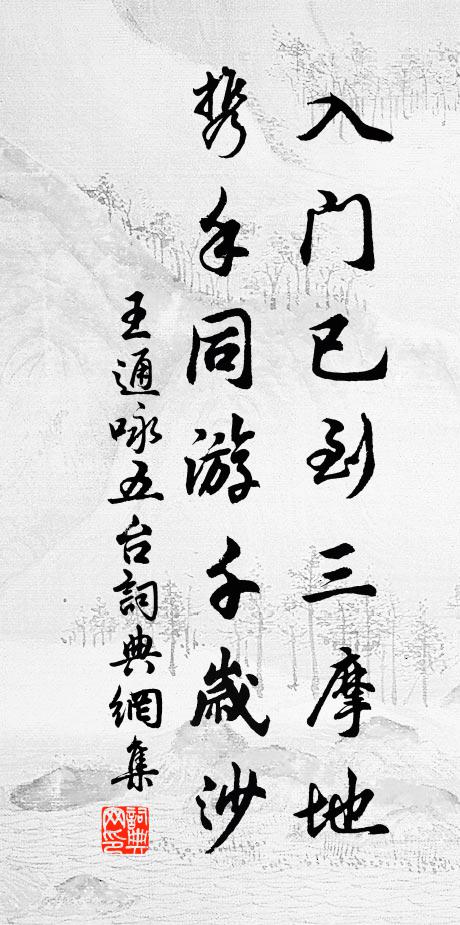 入门已到三摩地
携手同游千岁沙
王通咏五台词典網集
詞典网印